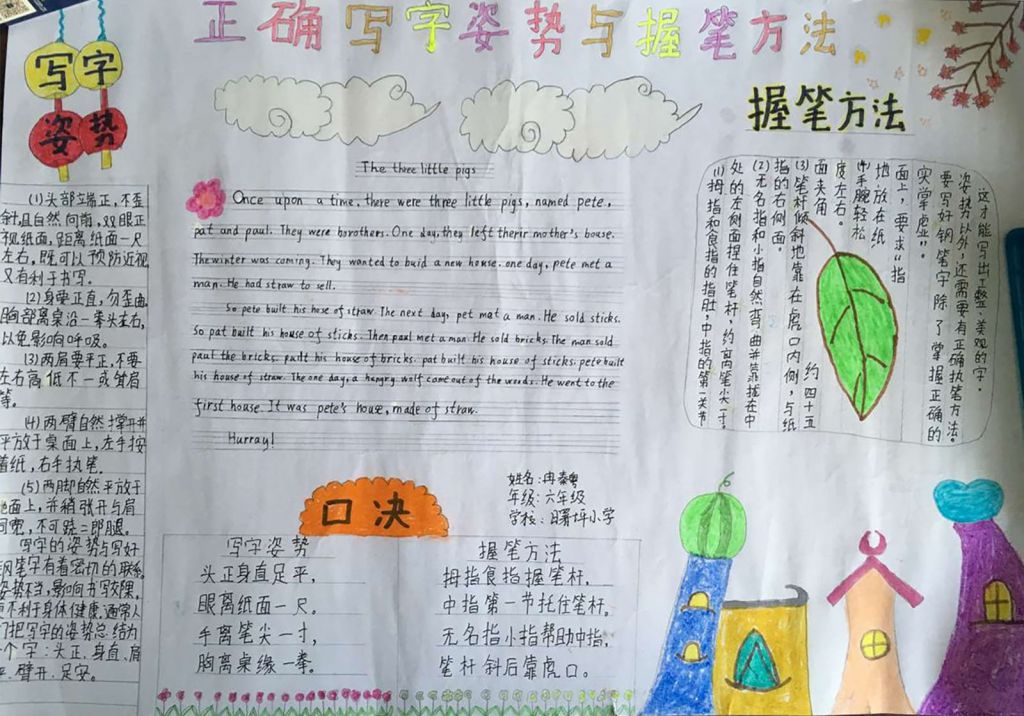 正确写字姿势与握笔方法
写字
姿势
(1)头部端正,不歪
斜,且自然向前,双眼正
视纸面,距离纸面一尺
左右,既可以预防近视
又有利于书写。
(2)身要正直,勿歪曲
胸部离桌沿一拳头左右,
以免影响呼吸。
(3)两肩要平正,不要
左右高低不一或耸肩
等。
(4)两臂自然撑开并
平放于桌面上,左手按
着纸,右手执笔。
(5)两脚自然平放于
地面上,并稍张开与肩
同宽,不可跷二郎腿。
写字的姿势与写好
钢笔字有着密切的联系,
姿势不当,影响书写效果,
更不利于身体健康,通常人
们把写字的姿势总结为
个字:头正、身直、肩
平、臂开、足安。
The three little pigs
Once upon a time, there were three little pigs, named pete,
pat and paul. They were borothers. One day, they left therir mother's bouse.
The winter was coming. They wanted to buid a new house. one day, pete met a
man. He had straw to sell.
So pete built his hose of straw. The next day, pet mat a man. He sold sticks.
So pat built his house of sticks. Then paul met a man. He sold bricks. The man sold
paul the bricks. pailt his house of bricks. pat built his house of sticks. pete built
his house of straw. The one day, a hangry wolf came out of the woods. He went to the
first house. It was pete's houe, made of straw.
Hurray!
握笔方法
这才能写出工整、美观的字,
姿势以外,还需要有正确执笔方法。
要写好钢笔字除了掌握正确的
实掌虚"。
面上,要求"指
地放在纸
(4)手腕轻松
度左右。
面夹角约四十五
(3)笔杆倾斜地靠在虎口内侧,与纸
指的右侧面。
(2)无名指和小指自然弯曲并靠插在中
处的左侧面捏住笔杆,约离笔尖一寸。
(1)拇指和食指的指肚,中指的第一关节
姓名:冉
年级:六年级
学校:坪小学
口决
写字姿势
头正身直足平,
眼离纸面一尺。
手离笔尖一寸,
胸离桌缘一拳。
握笔方法
拇指食指握笔杆,
中指第一节托住笔杆,
无名指小指帮助中指,
笔杆斜后靠虎口。